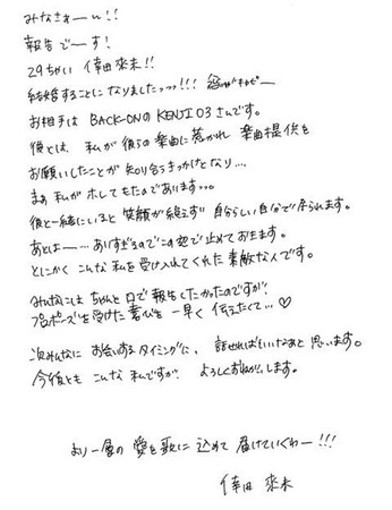 みなさぁーん!!
報告でーす!
29ちゃい 倖田來未!!
結婚することになりましたっっっ!!!
お相手は BACK-ONのKENJI03さんです。
彼とは、私が彼らの楽曲に惹かれ 楽曲提供を
お願いしたことが 知り合うきっかけとなり…
まぁ 私が ホレてもたのであります…。
彼と一緒にいると 笑顔が絶えず 自分らしい自分で居られます。
あとはー… ありすぎるのでこの辺で止めておきます。
とにかく こんな私を受け入れてくれた素敵な人です。
みんなには ちゃんと口で報告したかったのですが、
プロポーズを受けた喜びを 一早く 伝えたくて…♡
次みんなに お会いするタイミングに、 話せればいいなあと 思います。
今後とも こんな私ですが よろしくおねがいします。
より一層の 愛を歌に 込めて 届けていくわー!!!
倖田 來未